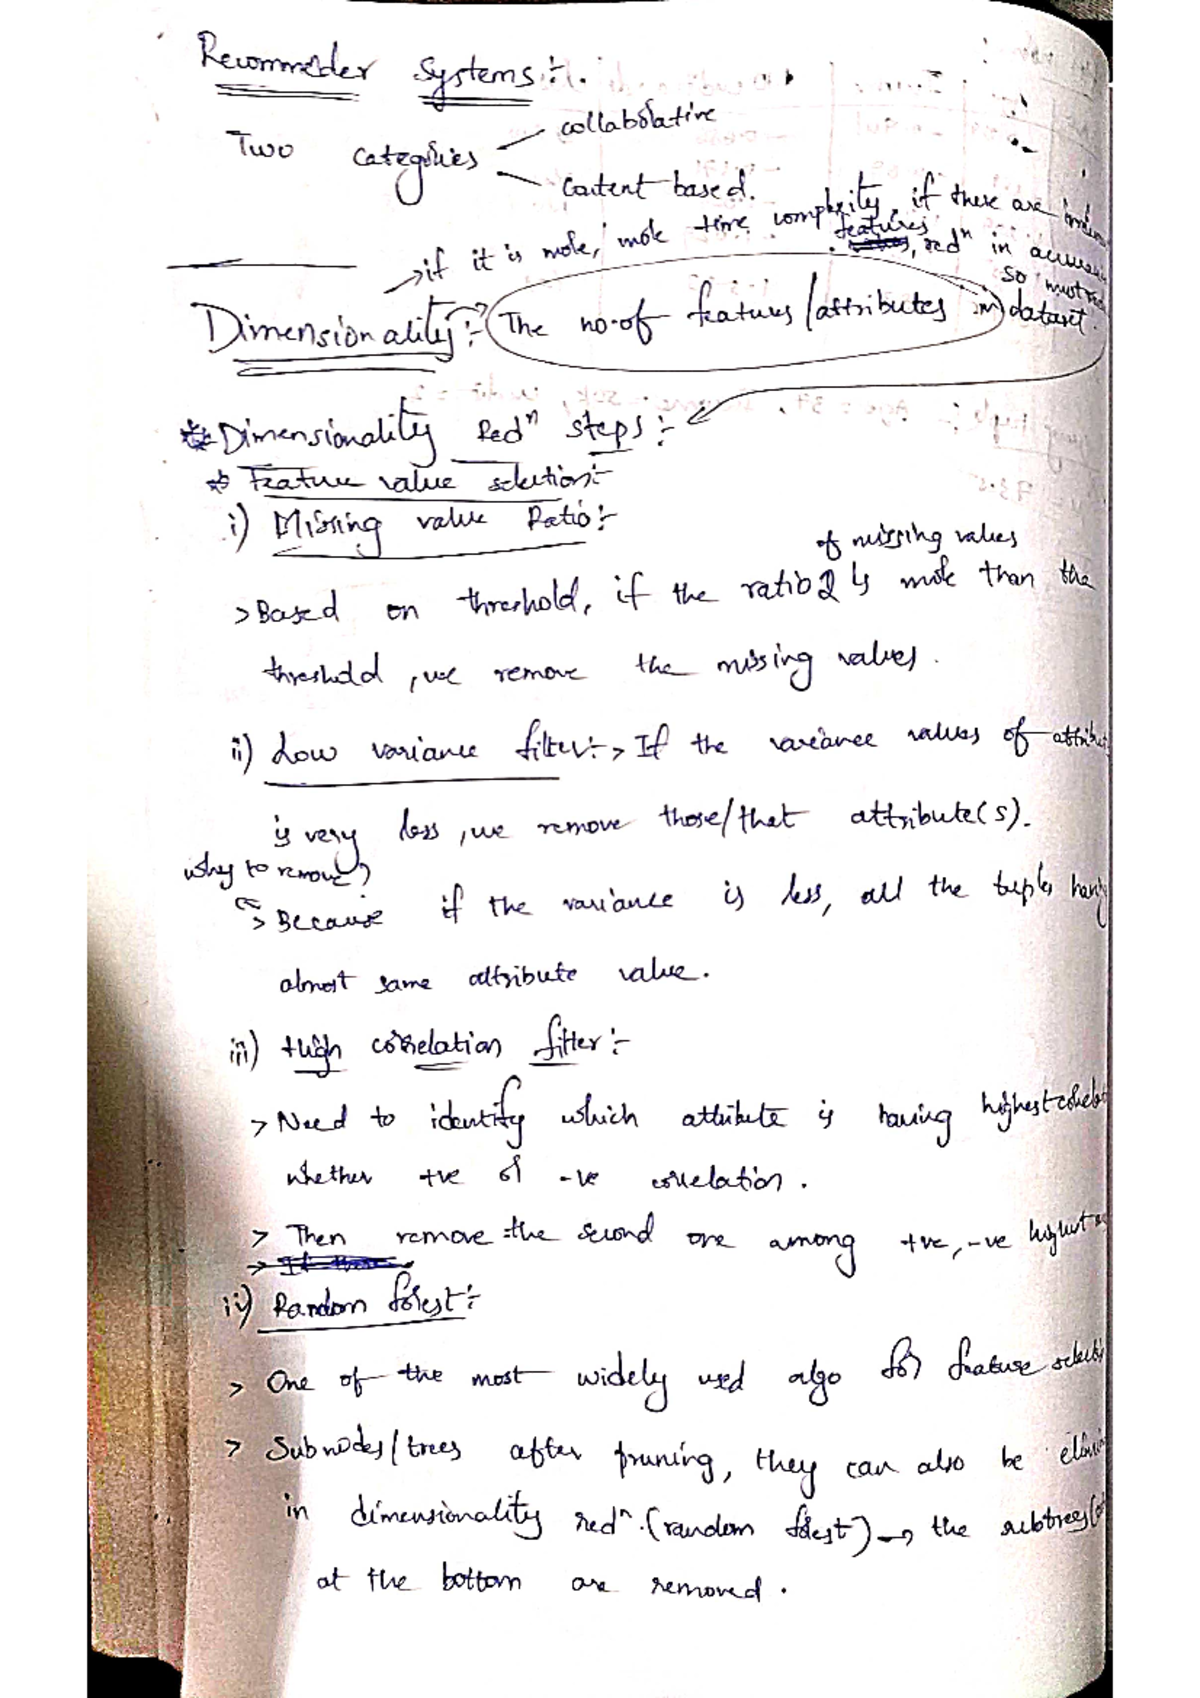 Recommender Systems :-
Two categories
collaborative
Content based.
→ if it is more, more time complexity, if there are
features, redⁿ in
so must
Dimensionality :- The no. of features/attributes in dataset.
* Dimensionality Redⁿ steps :-
* Feature value selection :-
i) Missing value Ratio :-
of missing values
> Based on threshold, if the ratio is more than the
threshold, we remove the missing values.
ii) Low variance filter :- > If the variance values of
is very less, we remove those/that attribute(s).
why to remove?
> Because if the variance is less, all the tuples having
almost same attribute value.
iii) High correlation filter :-
> Need to identify which attribute is having highest
whether +ve or -ve correlation.
> Then remove the second one among +ve, -ve highest
iv) Random forest :-
> One of the most widely used algo for feature
> Subnodes/trees after pruning, they can also be
in dimensionality redⁿ. (random forest) → the subtrees
at the bottom are removed.